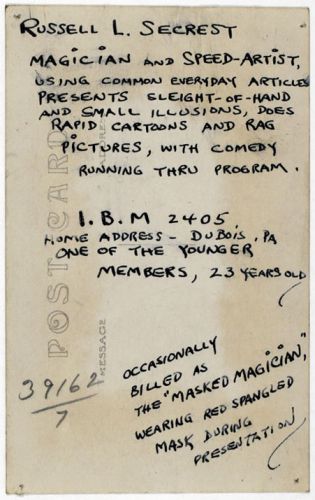 RUSSELL L. SECREST
MAGICIAN AND SPEED-ARTIST,
USING COMMON EVERYDAY ARTICLES
PRESENTS SLEIGHT-OF-HAND
AND SMALL ILLUSIONS, DOES
RAPID CARTOONS AND RAG
PICTURES, WITH COMEDY
RUNNING THRU PROGRAM.
I.B.M 2405
HOME ADDRESS - DUBOIS, PA
ONE OF THE YOUNGER
MEMBERS, 23 YEARS OLD
OCCASIONALLY
BILLED AS
THE "MASKED MAGICIAN,"
WEARING RED SPANGLED
MASK DURING
PRESENTATION
39162
7
POSTCARD
MESSAGE
ADDRESS